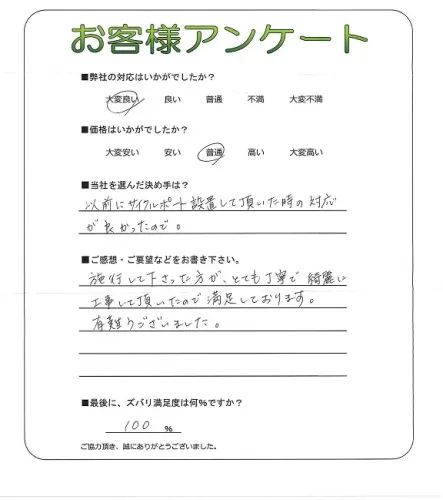 お客様アンケート
■弊社の対応はいかがでしたか?
大変良い 良い 普通 不満 大変不満
■価格はいかがでしたか?
大変安い 安い 普通 高い 大変高い
■当社を選んだ決め手は?
以前にサイクルポート設置して頂いた時の対応
が良かったので。
■ご感想・ご要望などをお書き下さい。
施行して下さった方が、とても丁寧で綺麗に
工事して頂いたので満足しております。
有難うございました。
■最後に、ズバリ満足度は何%ですか?
100 %
ご協力頂き、誠にありがとうございました。